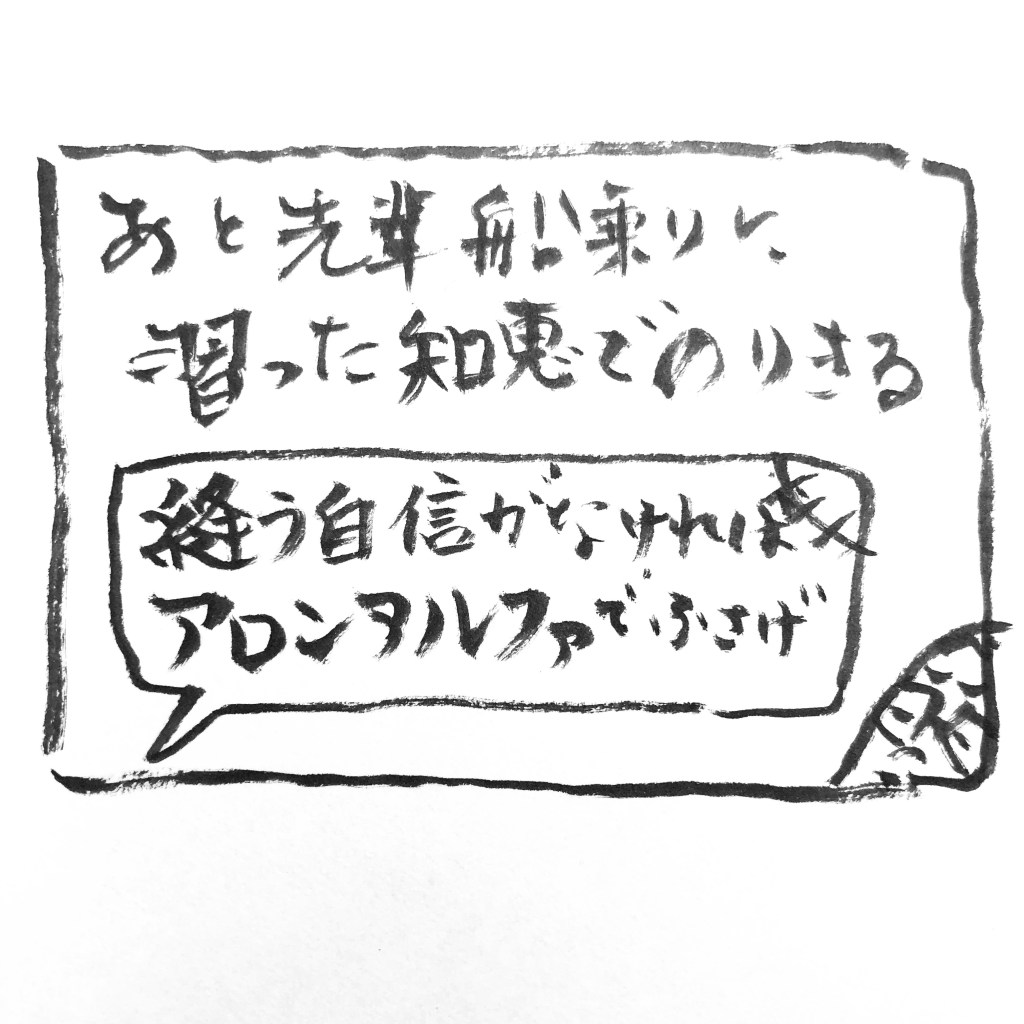 あと先輩船乗りに
習った知恵でのりきる
縫う自信がなければ
アロンアルファでふさげ